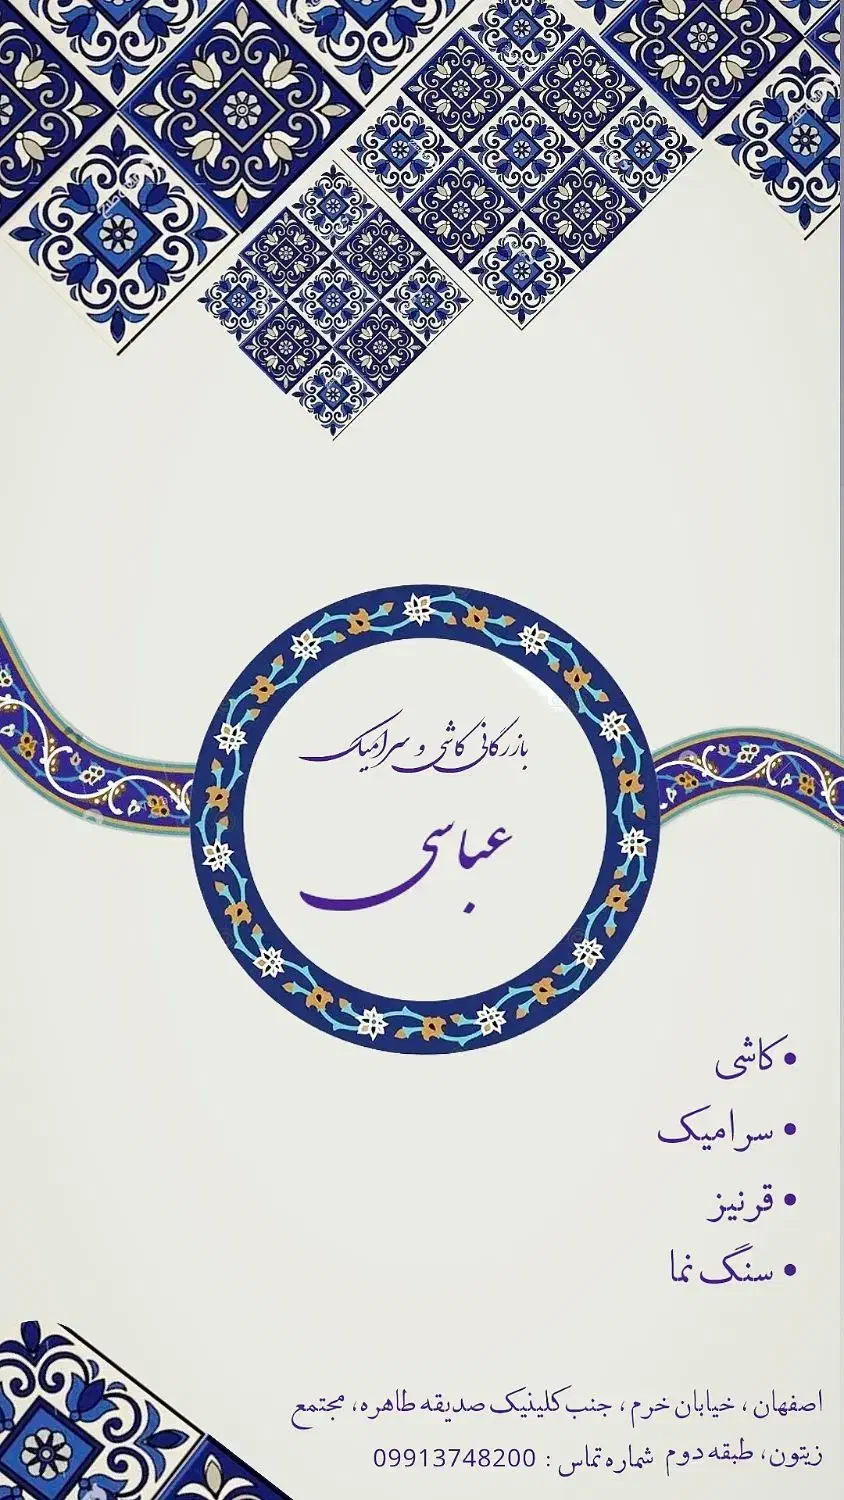 بازرگانی کاشی و سرامیک
عباسی
• کاشی
• سرامیک
• قرنیز
• سنگ نما
اصفهان ، خیابان خرم ، جنب کلینیک صدیقه طاهره، مجتمع
زیتون، طبقه دوم شماره تماس : 09913748200